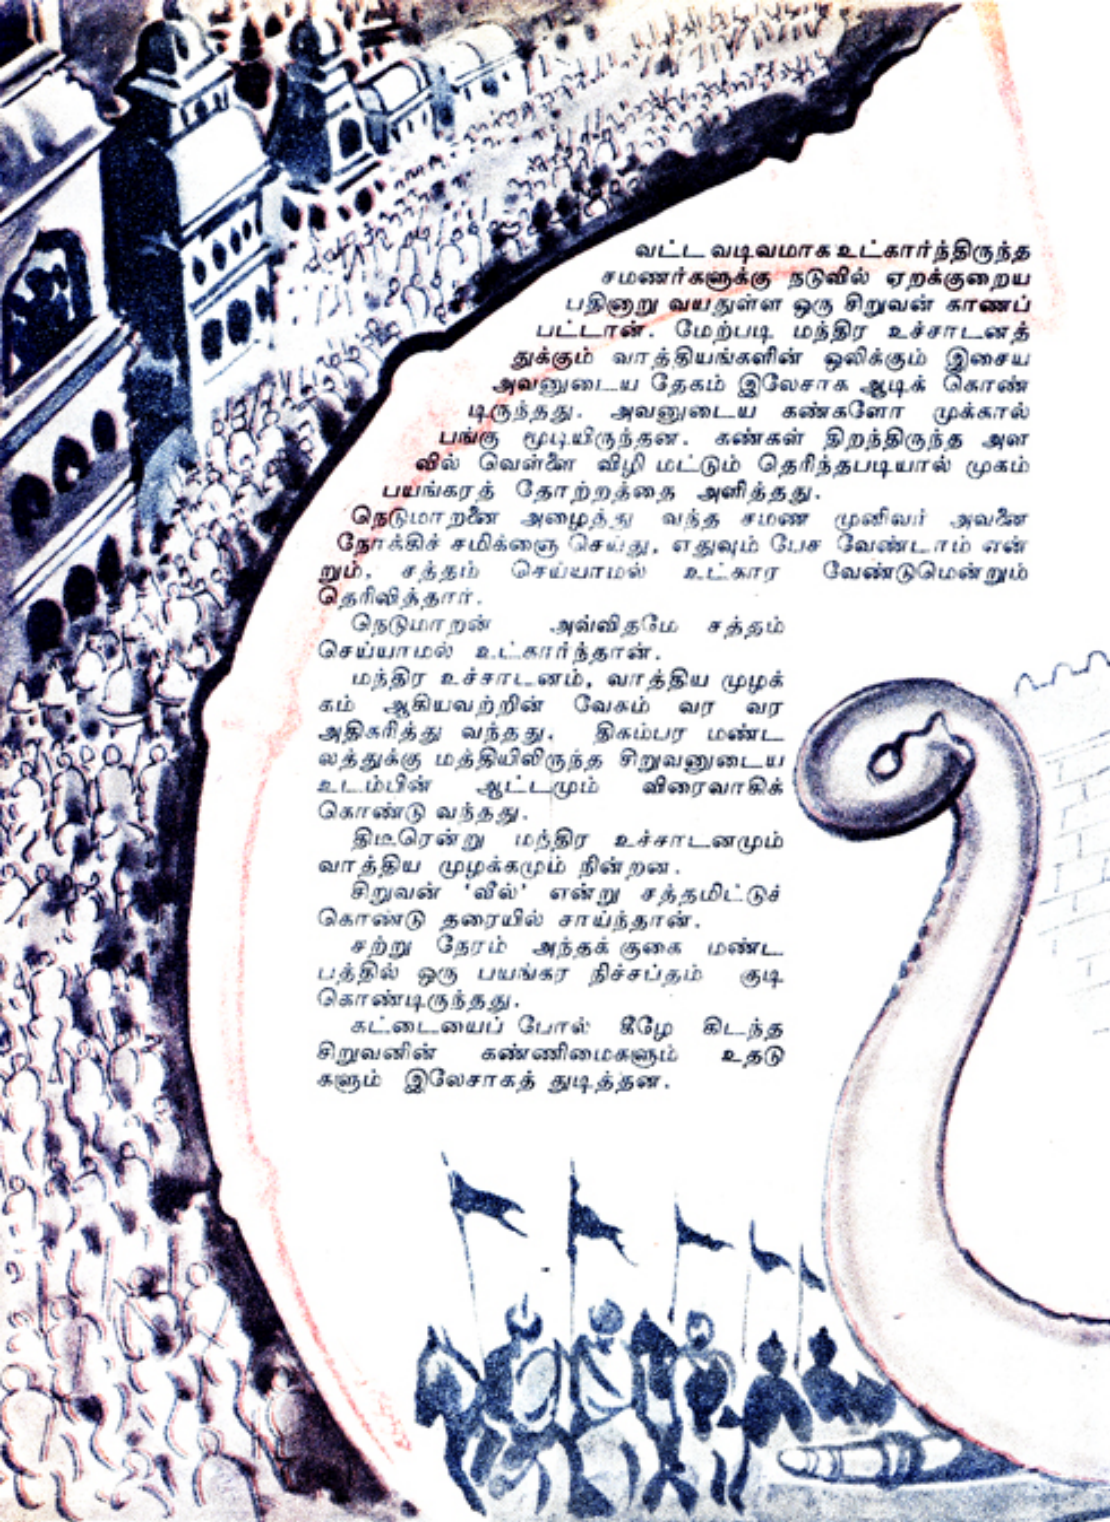 வட்ட வடிவமாக உட்கார்ந்திருந்த
சமணர்களுக்கு நடுவில் ஏறக்குறைய
பதினாறு வயதுள்ள ஒரு சிறுவன் காணப்
பட்டான். மேற்படி மந்திர உச்சாடனத்
துக்கும் வாத்தியங்களின் ஒலிக்கும் இசைய
அவனுடைய தேகம் இலேசாக ஆடிக் கொண்
டிருந்தது. அவனுடைய கண்களோ முக்கால்
பங்கு மூடியிருந்தன. கண்கள் திறந்திருந்த அள
வில் வெள்ளை விழி மட்டும் தெரிந்தபடியால் முகம்
பயங்கரத் தோற்றத்தை அளித்தது.
நெடுமாறனை அழைத்து வந்த சமண முனிவர் அவனை
நோக்கிச் சமிக்ஞை செய்து, எதுவும் பேச வேண்டாம் என்
றும், சத்தம் செய்யாமல் உட்கார வேண்டுமென்றும்
தெரிவித்தார்.
நெடுமாறன் அவ்விதமே சத்தம்
செய்யாமல் உட்கார்ந்தான்.
மந்திர உச்சாடனம், வாத்திய முழக்
கம் ஆகியவற்றின் வேகம் வர வர
அதிகரித்து வந்தது. திகம்பர மண்ட
லத்துக்கு மத்தியிலிருந்த சிறுவனுடைய
உடம்பின் ஆட்டமும் விரைவாகிக்
கொண்டு வந்தது.
திடீரென்று மந்திர உச்சாடனமும்
வாத்திய முழக்கமும் நின்றன.
சிறுவன் 'வீல்' என்று சத்தமிட்டுச்
கொண்டு தரையில் சாய்ந்தான்.
சற்று நேரம் அந்தக் குகை மண்ட
பத்தில் ஒரு பயங்கர நிச்சப்தம் குடி
கொண்டிருந்தது.
கட்டையைப் போல் கீழே கிடந்த
சிறுவனின் கண்ணிமைகளும் உதடு
களும் இலேசாகத் துடித்தன.